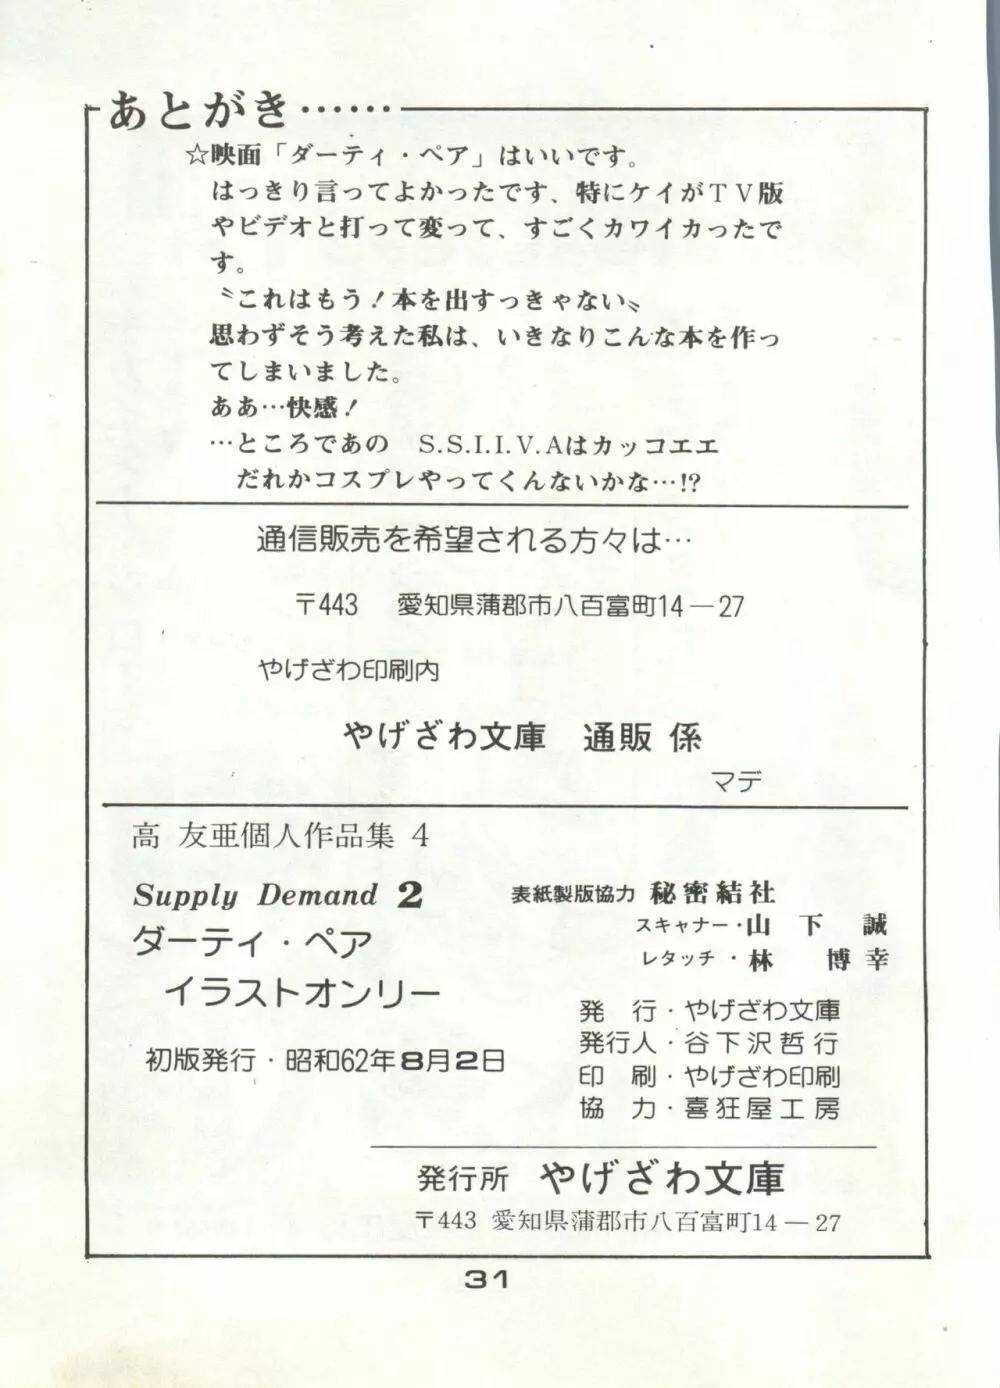 あとがき……
☆映画「ダーティ・ペア」はいいです。
はっきり言ってよかったです、特にケイがＴＶ版
やビデオと打って変って、すごくカワイカったで
す。
〝これはもう！本を出すっきゃない〟
思わずそう考えた私は、いきなりこんな本を作っ
てしまいました。
ああ…快感！
…ところであの　S.S.I.I.V.Aはカッコエエ
だれかコスプレやってくんないかな…!?
通信販売を希望される方々は…
〒443　愛知県蒲郡市八百富町14－27
やげざわ印刷内
やげざわ文庫　通販 係
マデ
高 友亜個人作品集 4
Supply Demand 2
ダーティ・ペア
イラストオンリー
初版発行・昭和62年8月2日
表紙製版協力 秘密結社
スキャナー・山　下　誠
レタッチ・林　博幸
発　行・やげざわ文庫
発行人・谷下沢哲行
印　刷・やげざわ印刷
協　力・喜狂屋工房
発行所 やげざわ文庫
〒443 愛知県蒲郡市八百富町14－27
31